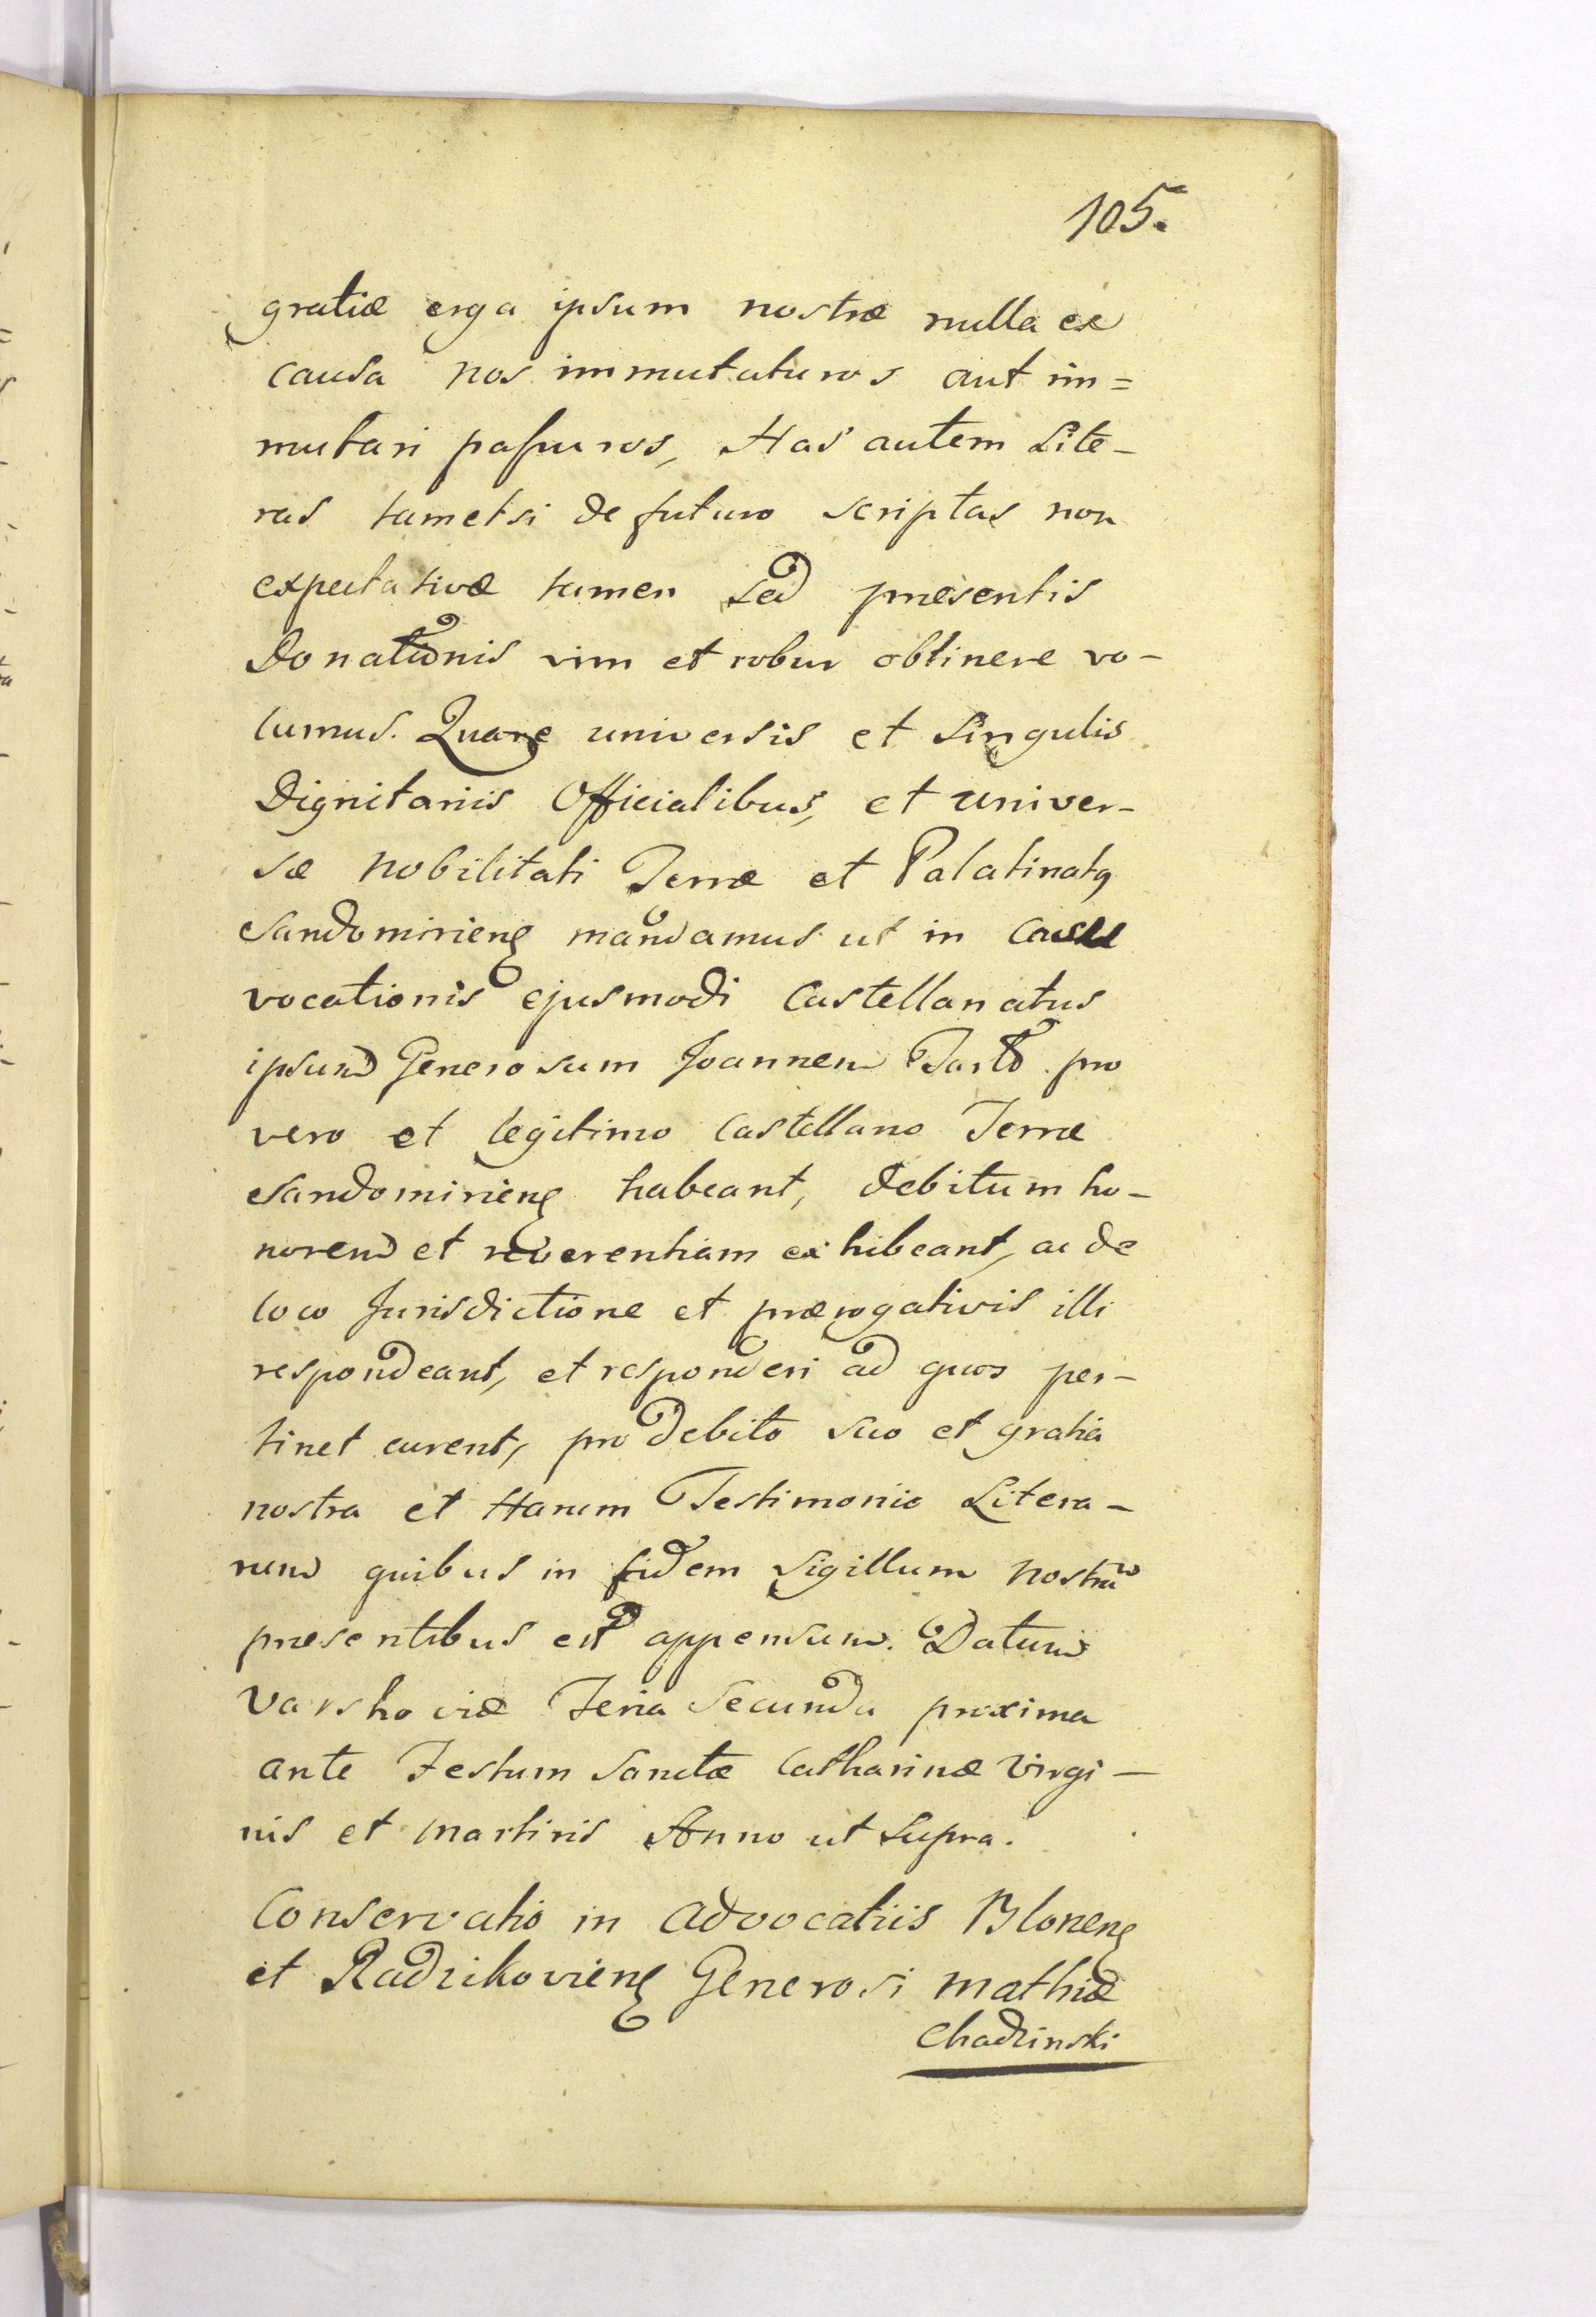 105.
gratiæ erga ipsum nostræ nulla ex
causa nos immutaturos aut im=
mutari passuros, Has autem Lite-
ras tametsi de futuro scriptas non
expectativæ tamen sed presentis
Donationis vim et robur obtinere vo-
lumus. Quare universis et Singulis
Dignitariis Officialibus, et univer-
sæ Nobilitati Terræ et Palatinatq
Sandomirienę mandamus ut in
vocationis ejusmodi Castellanatus
ipsum Generosum Joannem pro
vero et legitimo Castellano Terræ
Sandomirienę habeant, debitum ho-
norem et reverentiam exhibeant, ac de
loco Jurisdictione et prærogativis illi
respondeant, et responderi ad quos per-
tinet curent, pro debito suo et gratia
nostra et Harum Testimonio Litera-
rum quibus in fidem Sigillum nostrum
presentibus est appensum. Datum
Varshoviæ Feria Secunda proxima
ante Festum Sanctæ Catharinæ Virgi-
nis et Martiris Anno ut Supra.
Conservatio in Advocatiis Blonenę
et Radzikovienę Generosi Mathiæ
Chadzinski